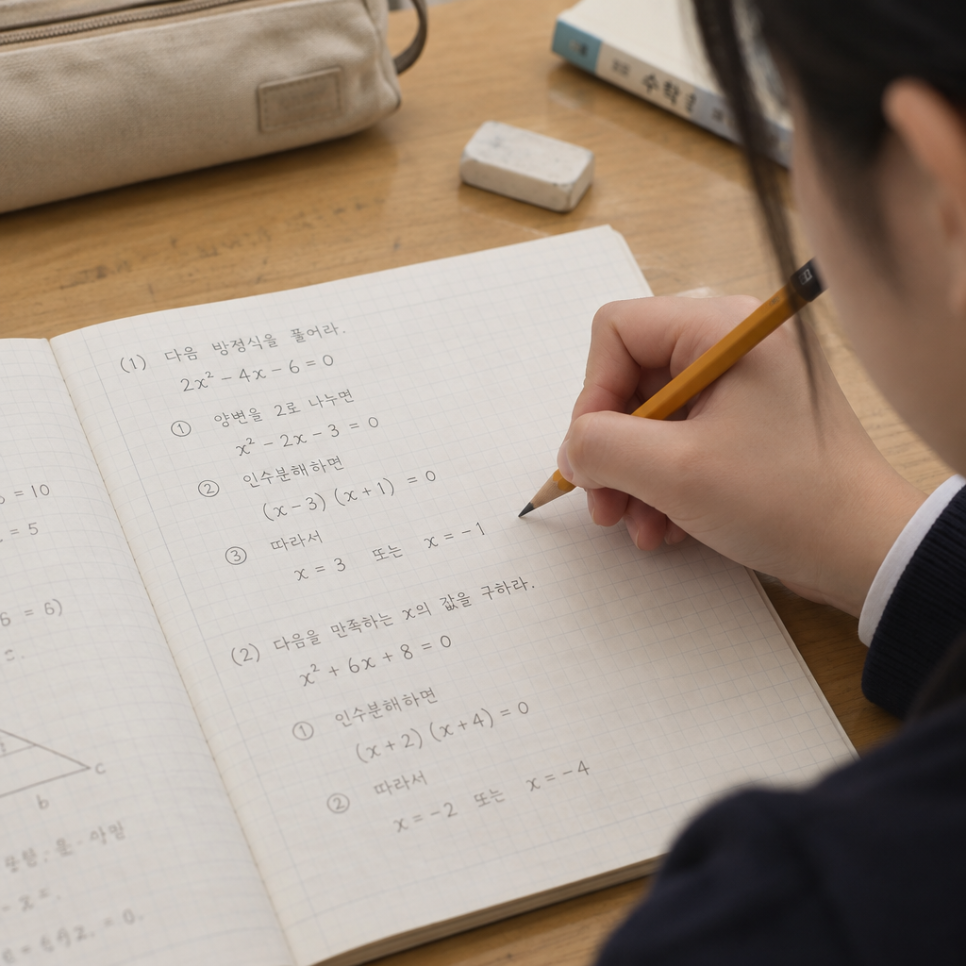 수학
= 10
= 5
= 6)
c
b
(1) 다음 방정식을 풀어라.
2x² - 4x - 6 = 0
① 양변을 2로 나누면
x² - 2x - 3 = 0
② 인수분해하면
(x - 3) (x + 1) = 0
③ 따라서
x = 3 또는 x = -1
(2) 다음을 만족하는 x의 값을 구하라.
x² + 6x + 8 = 0
① 인수분해하면
(x + 2) (x + 4) = 0
② 따라서
x = -2 또는 x = -4